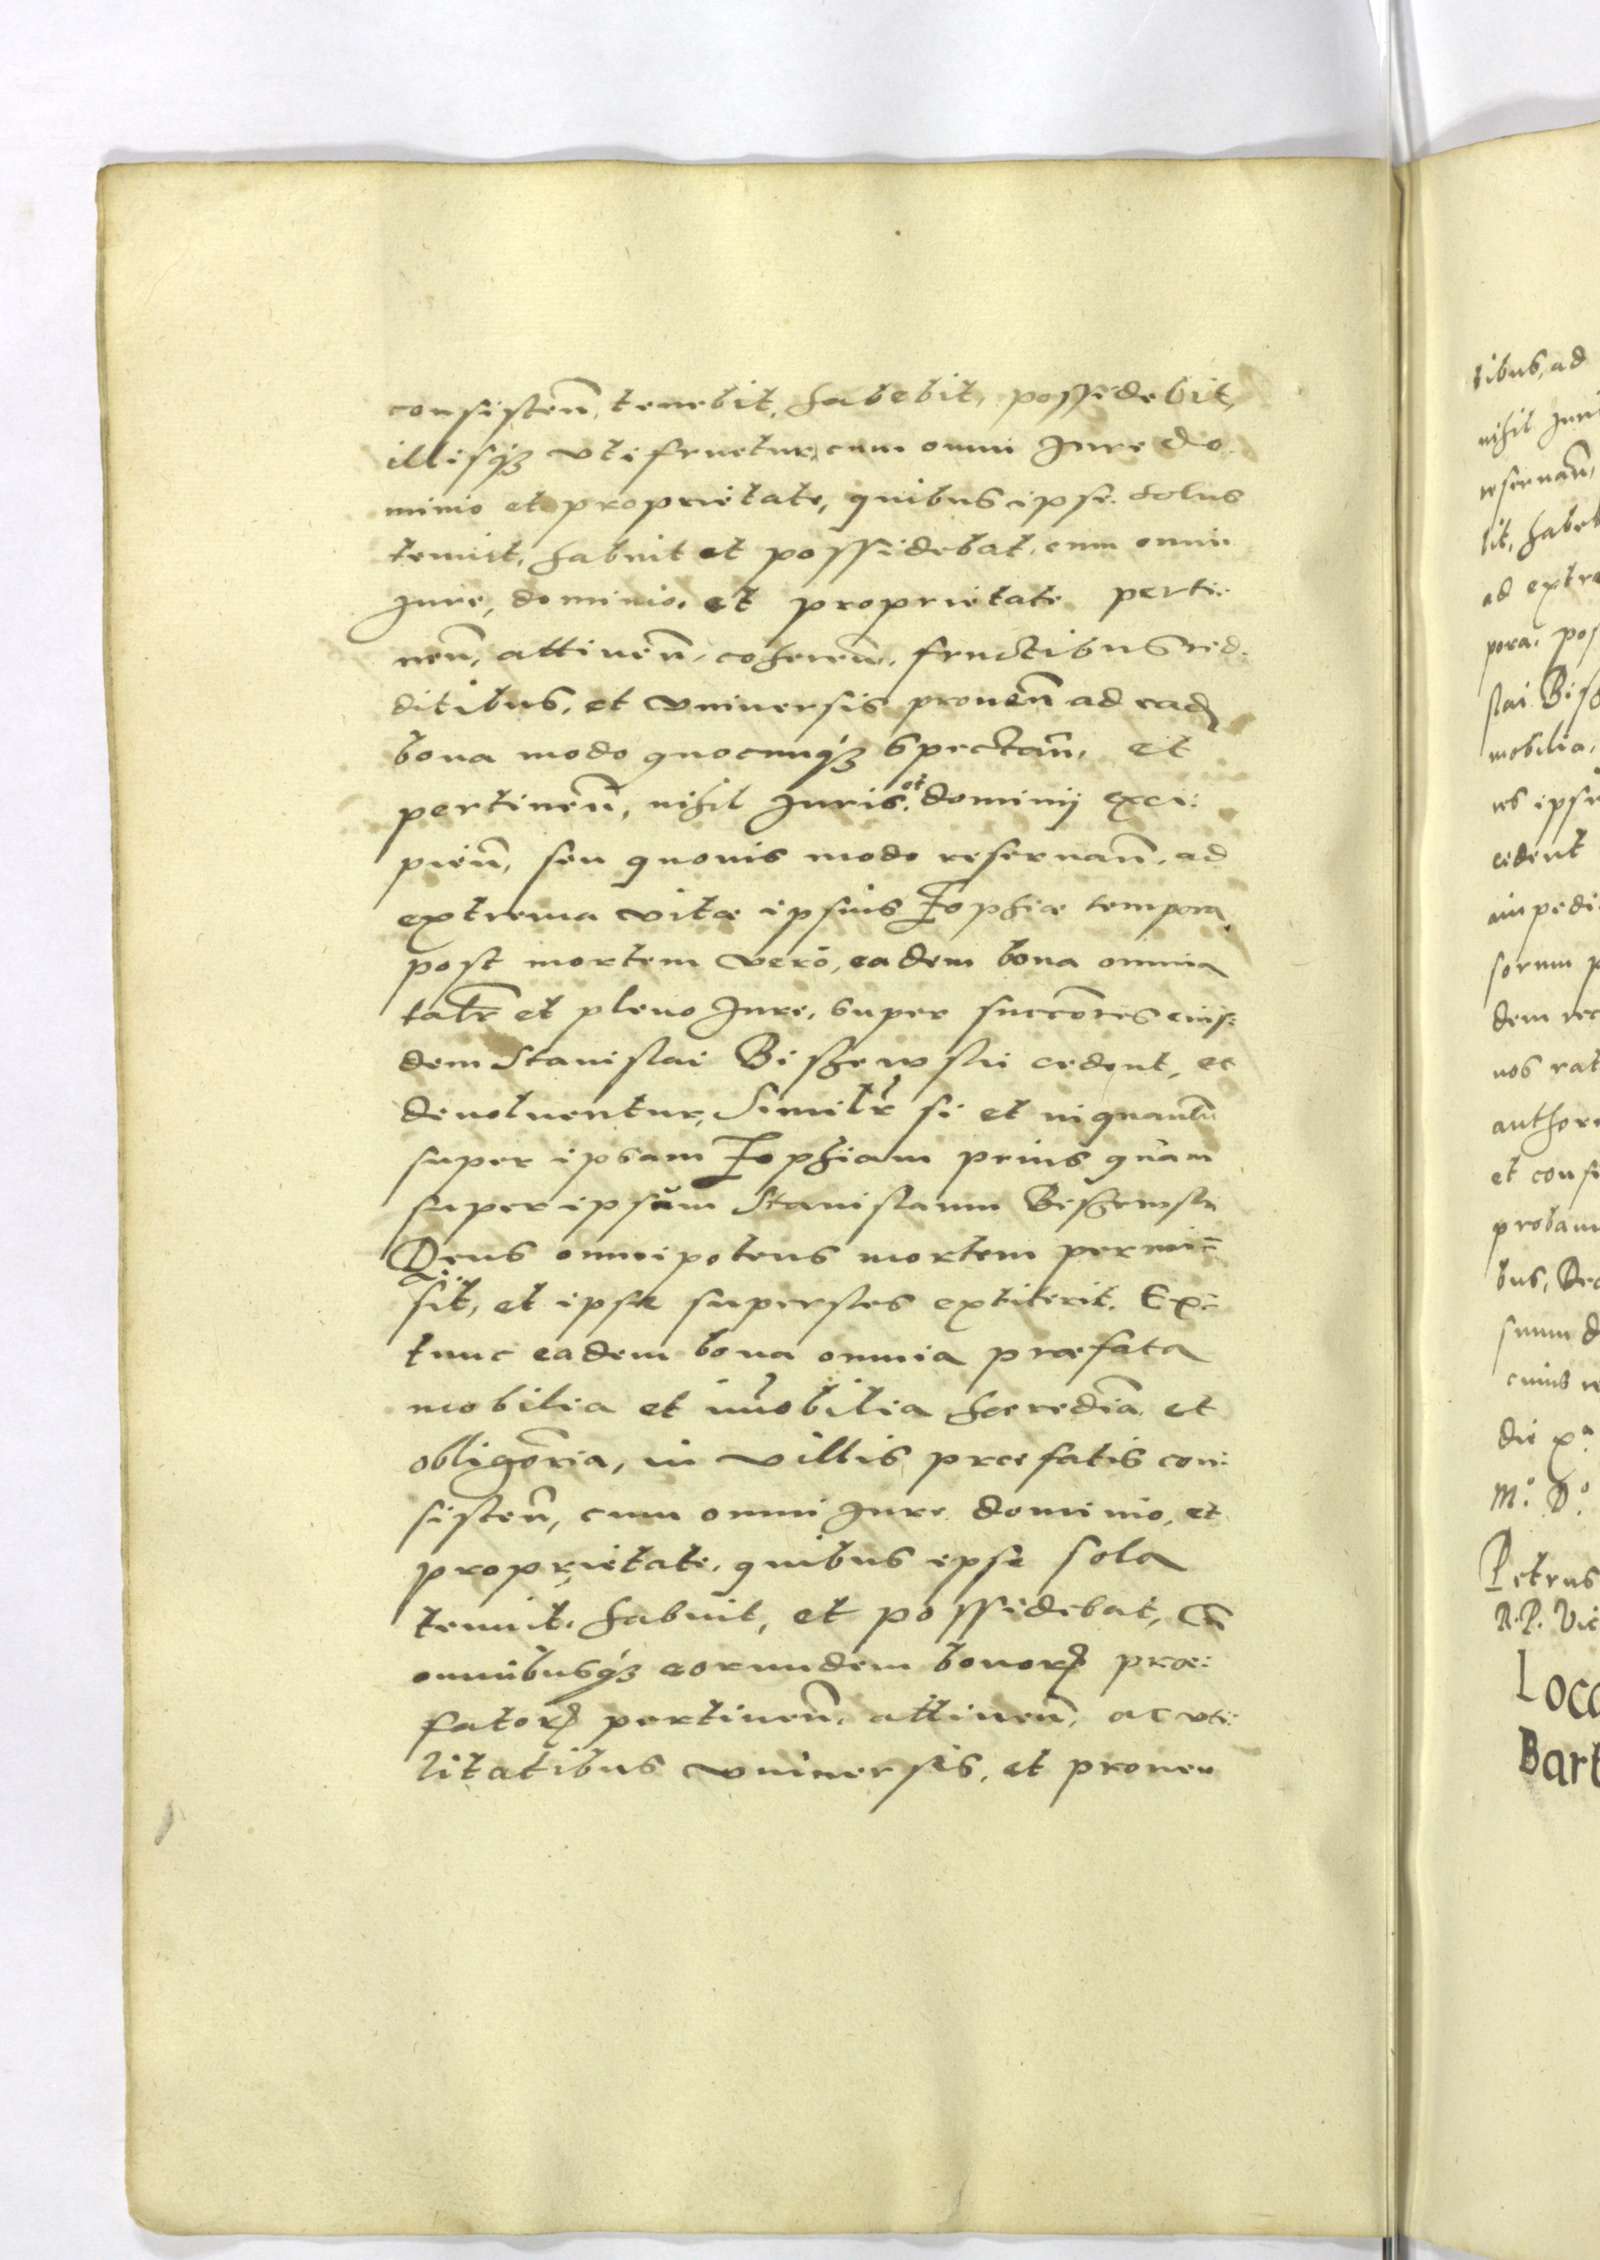 consisteñ, tenebit, habebit, possidebit,
illisq3 vtifruetur, cum omni Jure do
minio et proprietate, quibus ipse solus
tenuit, habuit et possidebat, cum omni
Jure, dominio, et proprietate perti:
neñ, attineñ, cohereñ, fructibus red:
ditibus, et vniuersis proueñ ad ead
bona modo quocunq3 spectañ, et
pertineñ, nihil Juris et dominij exci:
pieñ, seu quouis modo reseruañ, ad
extrema vitæ ipsius Zophiæ tempora,
post mortem vero, eadem bona omnia
talr et pleno Jure, super succores eius:
dem Stanislai Biskewski cedent, et
deuoluentur, Similr si et inquantu
super ipsam Zophiam prius quàm
super ipsum Stanislaum Biskewski
Deus omnipotens mortem permi:
sit, et ipse superstes extiterit. Ex:
tunc eadem bona omnia præfata
mobilia et im̃obilia hæredia et
obligoria, in villis præfatis con:
sisteñ, cum omni Jure dominio, et
proprietate, quibus ipsa sola
tenuit, habuit, et possidebat, Cu
omnibusq3 eorundem bonor præ:
fator pertineñ, attineñ, ac vti:
litatibus vniuersis, et prouen
tibus, ad
nihil Juri
reseruañ,
bit, habeb
ad extre
pora, pos
slai Bisk
mobilia,
es ipsi
cedent
impedi
sorum p
dem rec
nos rat
author
et consi
probam
bus, Dec
suum d
cuius re
die xª
M.º D.º
Petrus
R. P. Vic
Loco
Bart